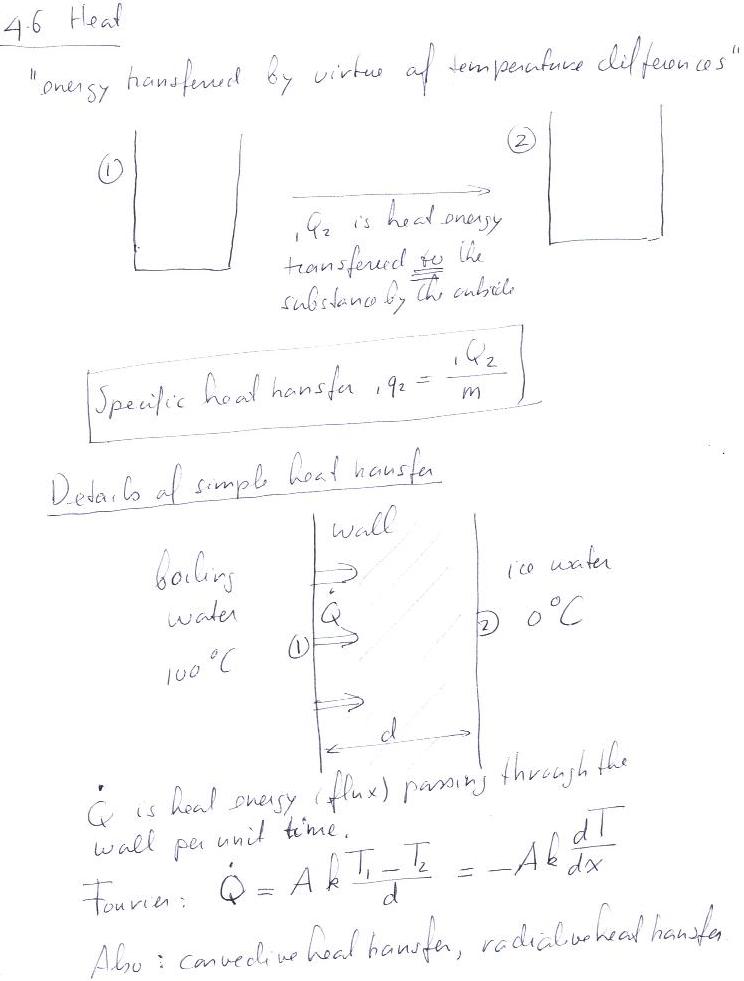 4.6 Heat
"energy transferred by virtue of temperature differences"
①
②
₁Q₂ is heat energy
transferred to the
substance by the outside
Specific heat transfer ₁q₂ = ₁Q₂ / m
Details of simple heat transfer
wall
boiling
water
100°C
Q̇
①
②
ice water
0°C
d
Q̇ is heat energy (flux) passing through the
wall per unit time.
Fourier: Q̇ = A k (T₁ – T₂) / d = – A k dT/dx
Also: convective heat transfer, radiative heat transfer